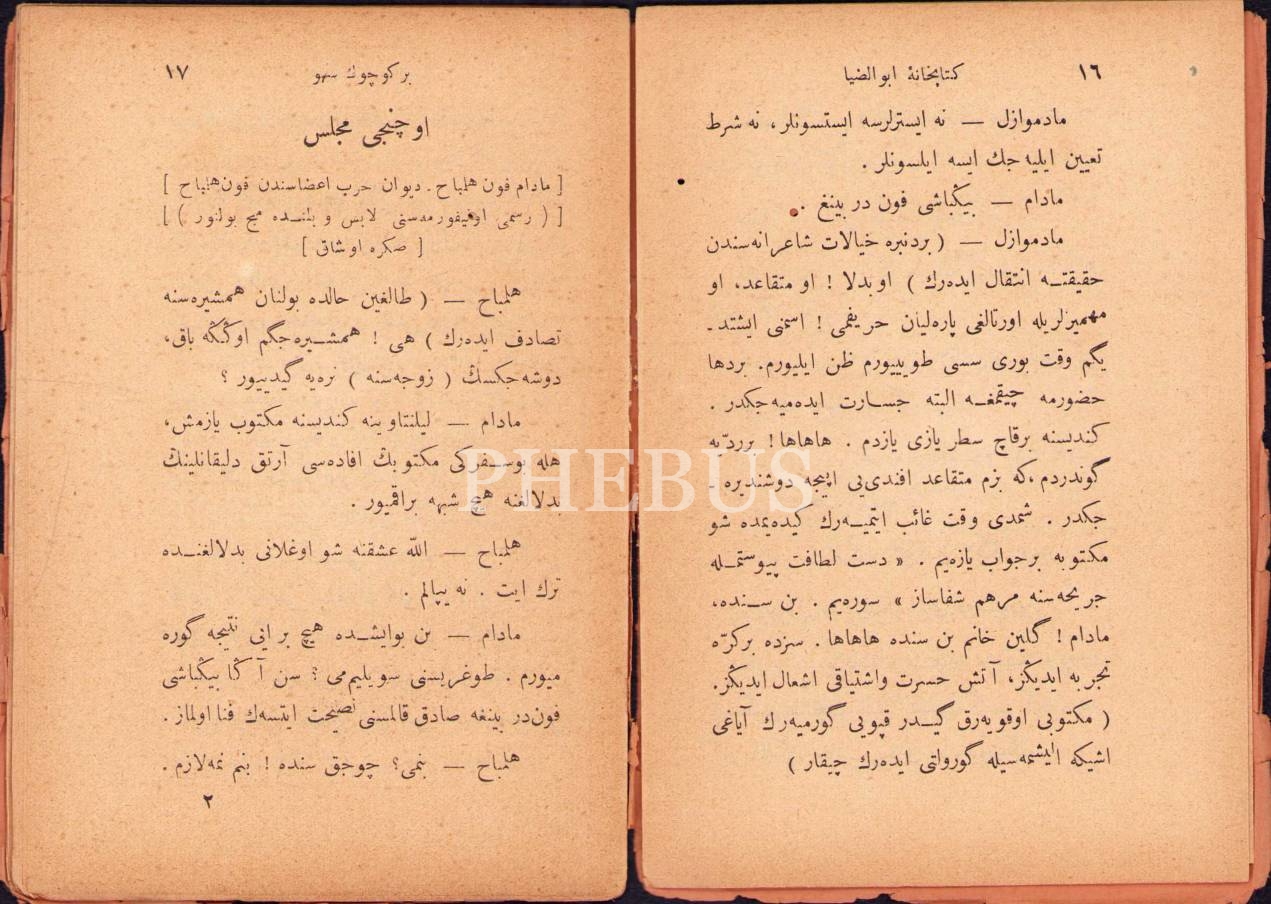 ١٦
كتابخانهٔ ابوالضیا
مادموازل — نه ایسترلرسه ایستسونلر، نه شرط
تعیین ایلیه جك ایسه ایلسونلر.
مادام — بیڭباشی فون در بینغ.
مادموازل — ( بردنبره خیالات شاعرانه‌سندن
حقیقتـه انتقال ایده‌رك ) او بدلا ! او متقاعد، او
مهمیزلریله اورتالغی پاره‌لیان حریفمی ! اسمنی ایشتد ـ
یگم وقت بوری سسی طوییورم ظن ایلیورم. بردها
حضورمه چیقمغـه البته جسارت ایده‌میه‌جكدر.
كندیسنه برقاچ سطر یازی یازدم. هاهاها! برردّیه
گوندردم، كه بزم متقاعد افندی‌یی اپیجه دوشندیره ـ
جكدر. شمدی وقت غائب ایتمیـه‌رك كیده‌یمده شو
مكتوبه برجواب یازه‌یم. « دست لطافت پیوستمـله
جریحه‌سنه مرهم شفاساز » سوره‌یم. بن سـنده،
مادام ! گلین خانم بن سنده هاهاها. سزده بركرّه
تجربه ایدیڭز، آتش حسرت واشتیاقی اشعال ایدیڭز.
( مكتوبی اوقویه‌رق گیـدر قپویی گورمیه‌رك آیاغی
اشیكه ایلیشمه‌سیله گورولتی ایده‌رك چیقار )
بر كوچوك سهو
١٧
اوچنجی مجلس
[ مادام فون هلمباح ـ دیوان حرب اعضاسندن فون هلمباح ]
[ ( رسمی اونیفورمه‌سنی لابس و بلنـده مج بولنور ) ]
[ صكره اوشاق ]
هلمباح — ( طالغین حالده بولنان همشیره‌سنه
تصادف ایده‌رك ) هی ! همشـیره‌جگم اوڭڭه باق،
دوشه‌جكسڭ ( زوجه‌سنه ) نره‌یه گیدییور ؟
مادام — لیلنتاوینه كندیسنه مكتوب یازمش،
هله بوسـفركی مكتوبڭ افاده‌سی آرتق دلیقانلینڭ
بدلالغنه هیچ شبهه براقمیور.
هلمباح — اللّه عشقنه شو اوغلانی بدلالغنـده
ترك ایت. نه یپالم.
مادام — بن بوایشـده هیچ بر ایی نتیجه گوره
میورم. طوغریسنی سویلیم‌می؟ سن آڭا بیڭباشی
فون در بینغه صادق قالمسنی نصیحت ایتسه‌ك فنا اولماز.
هلمباح — بنمی؟ چوجق سنده ! بنم نمه لازم.
٢
PHEBUS